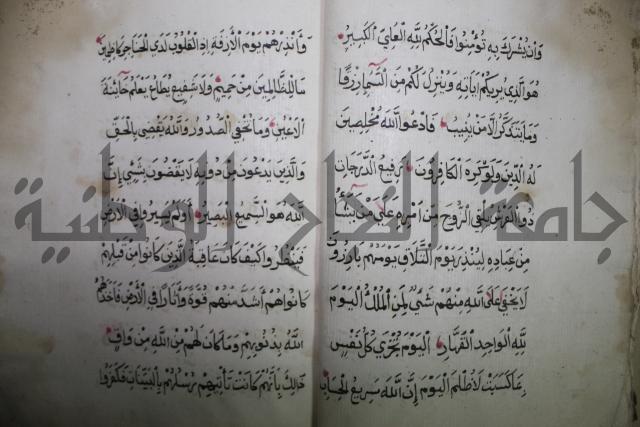 وان يشرك به تؤمنوا فالحكم لله العلي الكبير
هو الذي يريكم اياته وينزل لكم من السماء رزقا
وما يتذكر الا من ينيب فادعوا الله مخلصين
له الدين ولو كره الكافرون رفيع الدرجات
ذو العرش يلقي الروح من امره علي من يشاء
من عباده لينذر يوم التلاق يوم هم بارزون
لا يخفي علي الله منهم شئ لمن الملك اليوم
لله الواحد القهار اليوم تجزي كل نفس
بما كسبت لا ظلم اليوم ان الله سريع الحساب
وانذرهم يوم الازفة اذ القلوب لدي الحناجر كاظمين
ما للظالمين من حميم ولا شفيع يطاع يعلم خائنة
الاعين وما تخفي الصدور والله يقضي بالحق
والذين يدعون من دونه لا يقضون بشئ ان
الله هو السميع البصير اولم يسيروا في الارض
فينظروا كيف كان عاقبة الذين كانوا من قبلهم
كانوا هم اشد منهم قوة واثارا في الارض فاخذهم
الله بذنوبهم وما كان لهم من الله من واق
ذلك بانهم كانت تاتيهم رسلهم بالبينات فكفروا
جامعة النجاح الوطنية